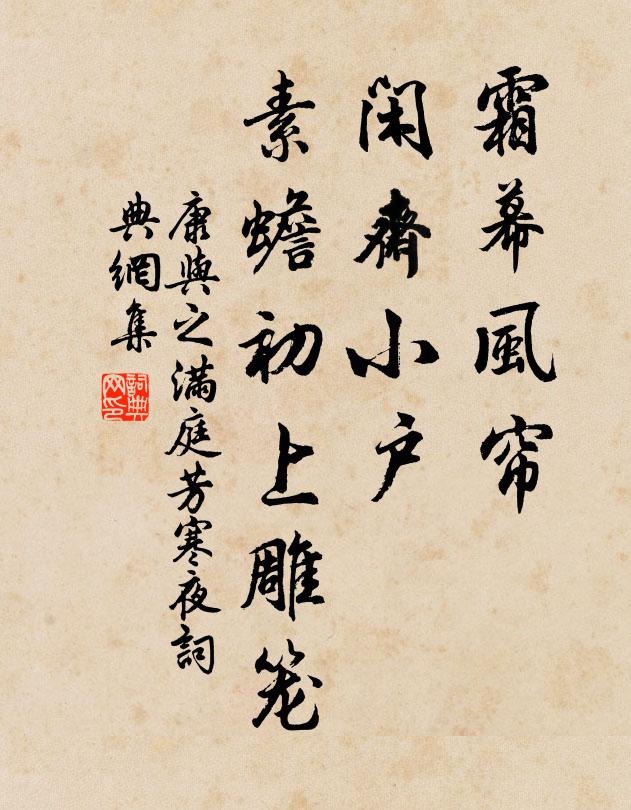 霜幕風帘
閑齋小户
素蟾初上雕笼
康與之满庭芳寒夜詞
典網集
詞典网印